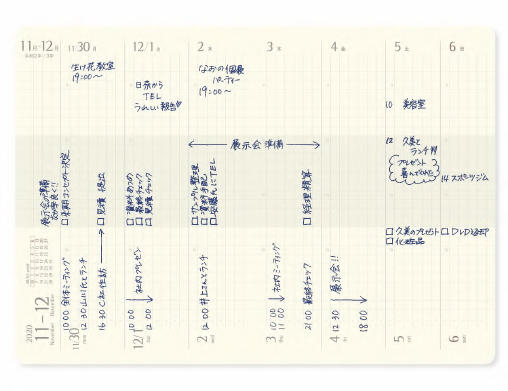 11月-12月
11/30 月
12/1 火
2 水
3 木
4 金
5 土
6 日
生け花教室
19:00〜
日奈から
TEL
うれしい報告
なおの個展
パーティー
19:00〜
10 美容室
12 久美と
ランチ
プレゼント
喜んでくれた
14 スポーツジム
展示会準備
展示会が準備
来期コンセプト決定
見積 提出
資料あつめ
最終チェック
見積チェック
サンプル整理
資料手配
安藤さんにTEL
経理精算
久美のプレゼント
化粧品
DVD返却
10:00 全体ミーティング
12:30 山川氏とランチ
16:30 C社 性訪
10:00
12:00
社内プレゼン
12:00 井上さんとランチ
10:00
11:00
社内ミーティング
21:00 最終チェック
12:30
18:00
展示会!!
2020
11—12
November
December
11/30 mon
12/1 tue
2 wed
3 thu
4 fri
5 sat
6 sun